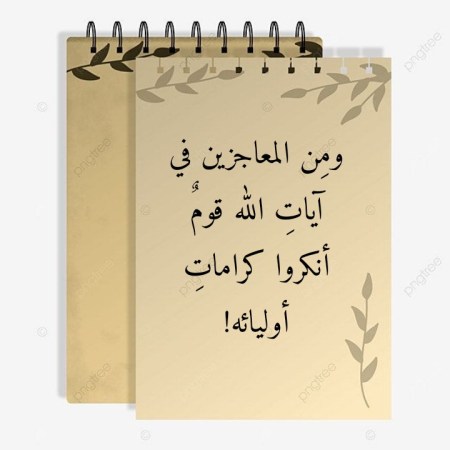 ومِن المعاجزين في
آياتِ الله قومٌ
أنكروا كراماتِ
أوليائه!